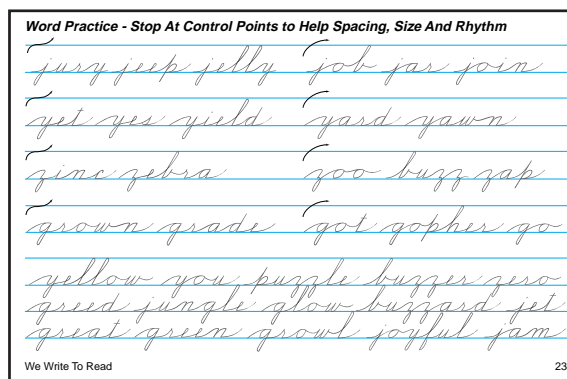 Word Practice - Stop At Control Points to Help Spacing, Size And Rhythm
jury jeep jelly job jar join
yet yes yield yard yawn
zinc zebra zoo buzz zap
grown grade got gopher go
yellow you puzzle buzzer zero
greed jungle glow buzzard jet
great green growl joyful jam
We Write To Read 23